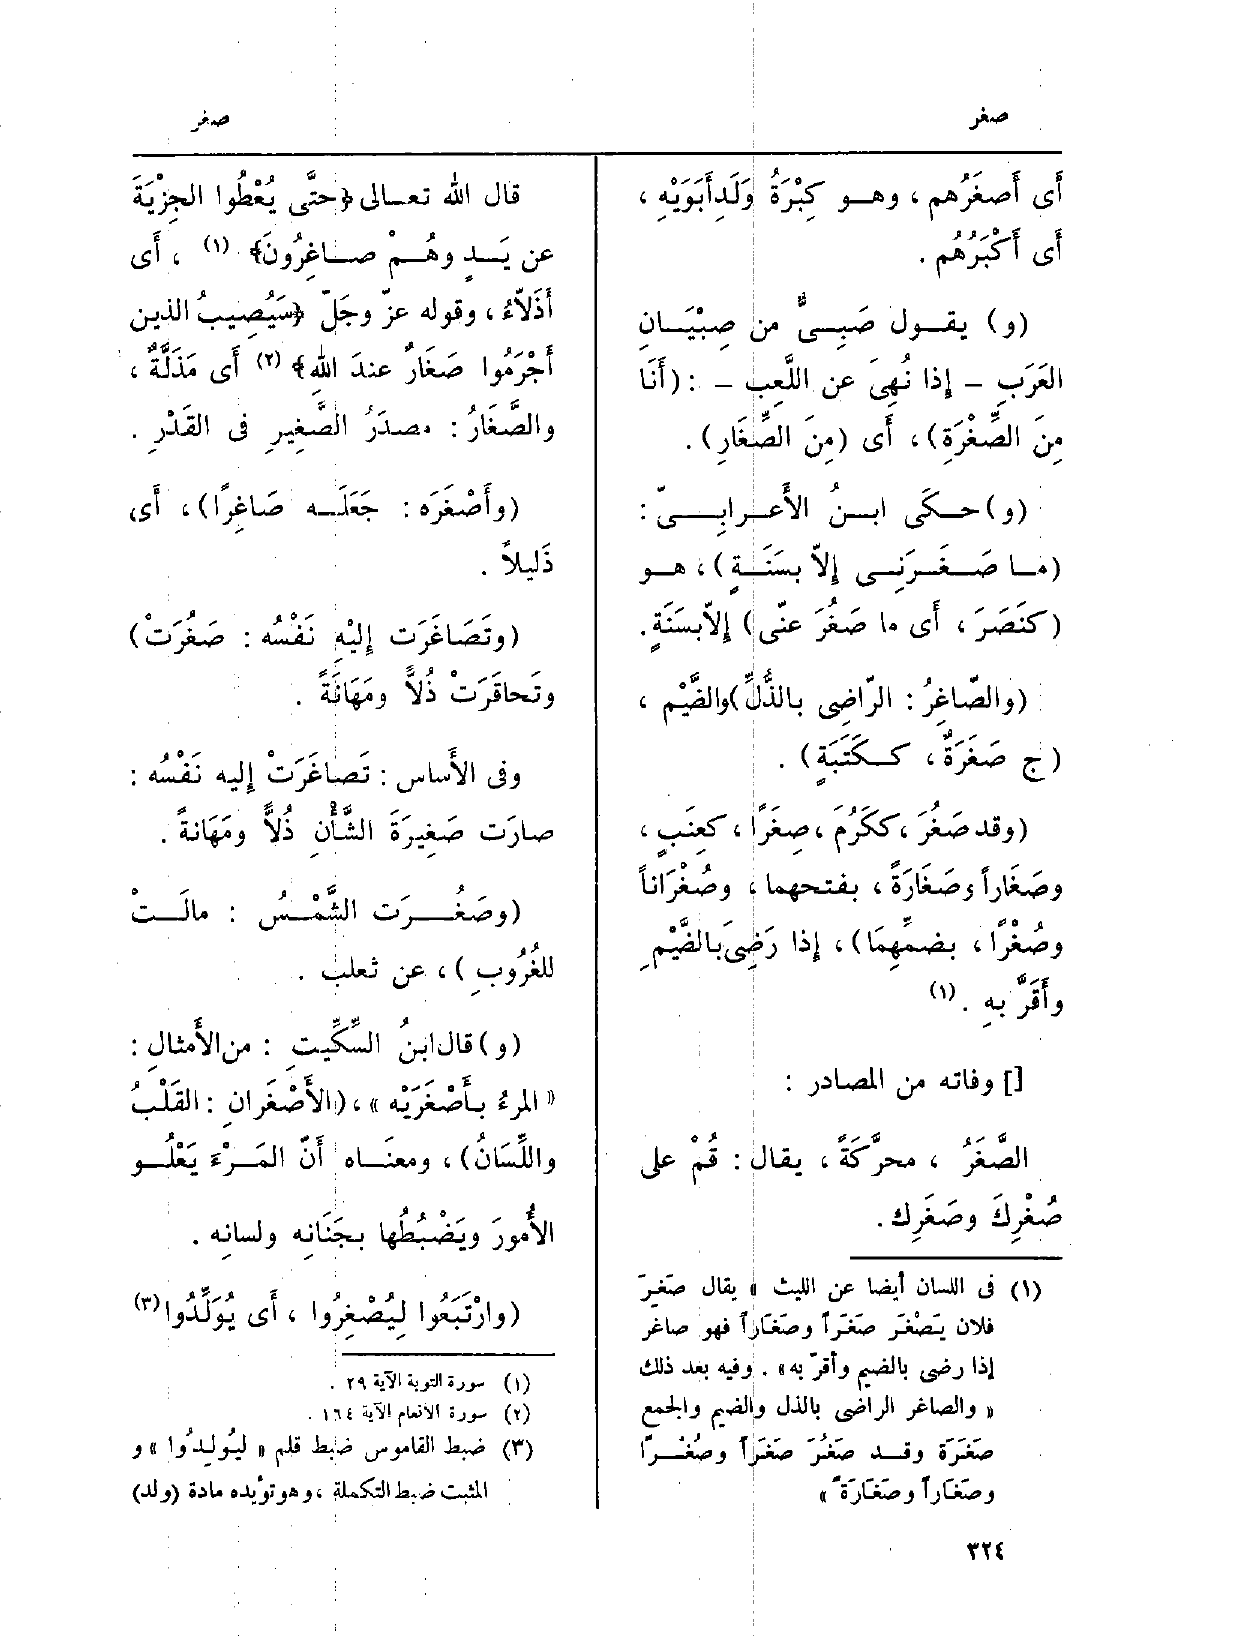 صغر
صغر
أَى أَصغَرُهم ، وهـو كِبْرَةُ وَلَدِأَبَوَيْهِ ،
أَى أَكْبَرُهُم .
(و) يقـول صَبِـىٌّ من صِبْيَـانِ
العَرَبِ – إذا نُهِىَ عن اللَّعِبِ – : (أَنَا
مِنَ الصِّغْرَةِ) ، أَى (مِنَ الصِّغَارِ) .
(و) حـكَى ابـنُ الأَعـرابِـىّ :
(مـا صَـغَـرَنِـى إلاّ بسَنَـةٍ) ، هـو
(كنَصَرَ ، أَى ما صَغُرَ عنّى) إلاّبسَنَةٍ.
(والصّاغِرُ : الرّاضِى بالذُّلِّ) والضَّيْمِ ،
(ج صَغَرَةٌ ، كـكَتَبَةٍ) .
(وقد صَغُرَ ، ككَرُمَ ، صِغَرًا ، كعِنَبٍ ،
وصَغَاراً وصَغَارَةً ، بفتحهما ، وصُغْرَاناً
وصُغْرًا ، بضمِّهِمَا) ، إذا رَضِىَ بالضَّيْمِ
وأَقَرَّ بهِ . (١)
[] وفاته من المصادر :
الصَّغَرُ ، محرَّكةً ، يقال : قُمْ على
صُغْرِكَ وصَغَرِك .
(١) فى اللسان أيضا عن الليث « يقال صَغِرَ
فلان يَصْغَر صَغَراً وصَغَاراً فهو صاغر
إذا رضى بالضيم وأقرّ به» . وفيه بعد ذلك
« والصاغر الراضى بالذل والضيم والجمع
صَغَرَة وقـد صَغُرَ صَغَراً وصُغْـراً
وصَغَاراً وصَغَارَةً »
قال الله تعـالى ﴿حتَّى يُعْطُوا الجِزْيَةَ
عن يَـدٍ وهُـمْ صـاغِرُونَ﴾ (١) ، أَى
أَذَلّاءُ ، وقوله عزّ وجَلّ ﴿سَيُصِيبُ الذين
أَجْرَمُوا صَغَارٌ عندَ اللهِ﴾ (٢) أَى مَذَلَّةٌ ،
والصَّغَارُ : مصدَرُ الصَّغِيرِ فى القَدْرِ .
(وأَصْغَرَه : جَعَلَـه صَاغِرًا) ، أَى
ذَلِيلاً .
(وتَصَاغَرَت إِليْهِ نَفْسُه : صَغُرَتْ)
وتَحاقَرَتْ ذُلاًّ ومَهَانَةً .
وفى الأَساس : تَصاغَرَتْ إليه نَفْسُه :
صارَت صَغِيرَةَ الشَّأْنِ ذُلاًّ ومَهَانةً .
(وصَغُــرَت الشَّمْـسُ : مالَـتْ
للغُرُوبِ ) ، عن ثعلب .
(و) قال ابنُ السِّكِّيتِ : من الأَمثالِ :
« المرءُ بـأَصْغَرَيْه » ، (الأَصْغَرانِ : القَلْبُ
واللِّسَانُ) ، ومعنَـاه أَنّ المَـرْءَ يَعْلُـو
الأُمورَ ويَضْبُطُها بجَنَانِه ولسانِه .
(وارْتَبَعُوا لِيُصْغِرُوا ، أَى يُوَلِّدُوا (٣)
(١) سورة التوبة الآية ٢٩ .
(٢) سورة الأنعام الآية ١٦٤ .
(٣) ضبط القاموس ضبط قلم « ليُولِدُوا » و
المثبت ضبط التكملة ، وهو تؤيده مادة (ولد)
٣٢٤